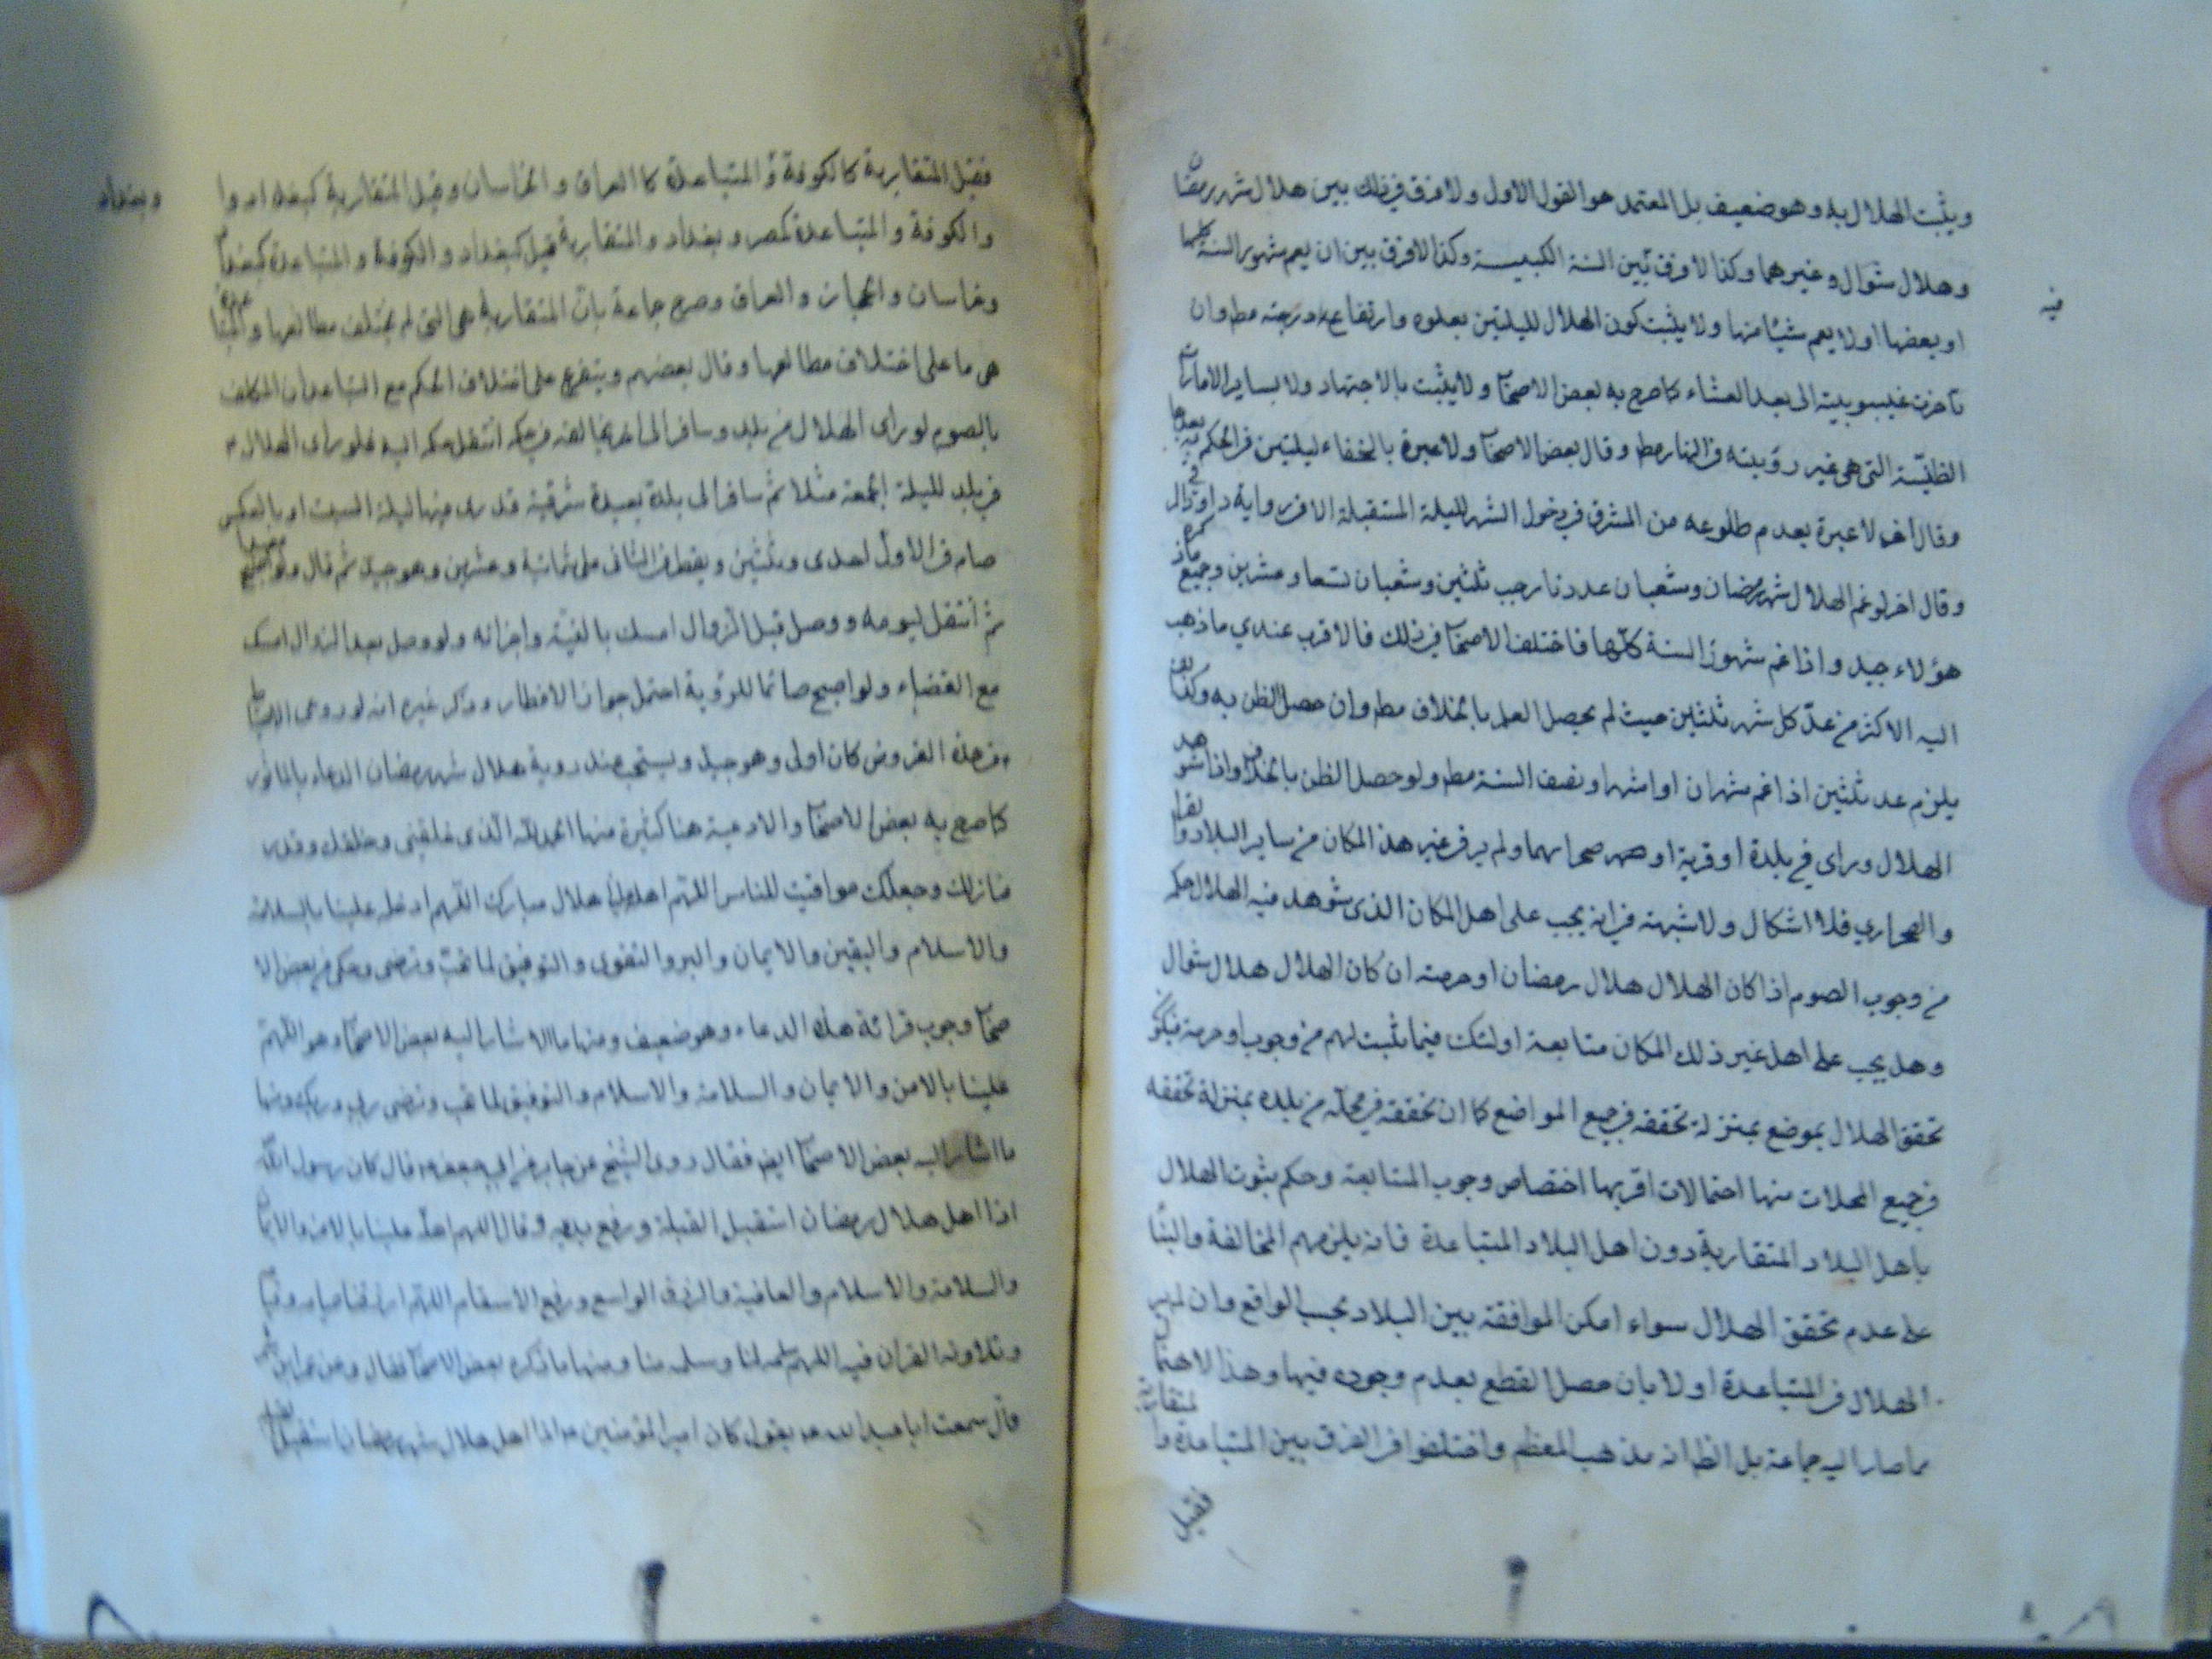 ويثبت الهلال به وهو ضعيف بل المعتمد هو القول الاول ولا فرق في ذلك بين هلال شهر رمضان
وهلال شوال وغيرهما وكذا لا فرق بين السنة الكبيسة وكذا لا فرق بين ان يعم شهور السنة كلها
فيه
او بعضها او لا يعم شيئا منها ولا يثبت كون الهلال لليلتين بعلوه وارتفاع درجته مط وان
تاخرت غيبوبيته الى بعد العشاء كما صرح به بعض الاصحاب ولا يثبت بالاجتهاد ولا بساير الامارات
الظنيّة التى هى غير رؤيته في النهار مط وقال بعض الاصحاب ولا عبرة بالخفاء ليلتين في الحكم به بعدها
وقال اخر لا عبرة بعدم طلوعه من المشرق في دخول الشهر لليلة المستقبلة الا في رواية داود
وقال اخر لو غم الهلال شهر رمضان وشعبان عددنا رجب ثلثين وشعبان تسعا وعشرين وجميع ما ذكره
هؤلاء جيد واذا غم شهور السنة كلّها فاختلف الاصحاب في ذلك فالاقرب عندي ما ذهب
اليه الاكثر من عدّ كل شهر ثلثين حيث لم يحصل العلم بالخلاف مط وان حصل الظن به وكذا
يلزم عد ثلثين اذا غم شهران او اشهر او نصف السنة مط ولو حصل الظن بالخلاف واذا شوهد
الهلال وراى في بلدة او قرية او صحراء ولم ير في غير هذا المكان من ساير البلاد والقرا
والصحاري فلا اشكال ولا شبهة في انه يجب على اهل المكان الذى شوهد فيه الهلال حكمه
من وجوب الصوم اذا كان الهلال هلال رمضان او حرمته ان كان الهلال هلال شوال
وهل يجب على اهل غير ذلك المكان متابعة اولئك فيما ثبت لهم من وجوب او حرمة فيكون
تحقق الهلال بموضع بمنزلة تحققه في جميع المواضع كما ان تحققه في محلّه من بلده بمنزلة تحققه
في جميع المحلات منها احتمالات اقربها اختصاص وجوب المتابعة وحكم بثوت الهلال
باهل البلاد المتقاربة دون اهل البلاد المتباعدة فانه يلزمهم المخالفة والبناء
على عدم تحقق الهلال سواء امكن الموافقة بين البلاد بحسب الواقع وان لم ير
الهلال في المتباعدة او لا بان حصل القطع بعدم وجوده فيها وهذا الاحتمال
مما صار اليه جماعة بل الظ انه مذهب المعظم واختلفوا في الفرق بين المتباعدة والمتقاربة
فقيل
فقيل المتقاربة كالكوفة و المتباعدة كالعراق والخراسان وقيل المتقاربة كبغداد
وبغداد
والكوفة والمتباعدة كمصر وبغداد والمتقاربة قيل كبغداد والكوفة والمتباعدة كبغداد
وخراسان والحجاز والعراق وصرح جماعة بان المتقاربة هى التى لم يختلف مطالعها والمتباعدة
هى ما على اختلاف مطالعها وقال بعضهم ويتفرع على اختلاف الحكم مع التباعد ان المكلف
بالصوم لو راى الهلال في بلد وسافر الى اخر يخالفه في حكمه انتقل حكمه اليه فلو راى الهلال
في بلد لليلة الجمعة مثلا ثم سافر الى بلدة بعيدة شرقية قد رى فيها ليلة السبت او بالعكس
صام في الاول احدى وثلثين ويفطر في الثانى على ثمانية وعشرين وهو جيد ثم قال ولو اصبح
ثم انتقل ليومه ووصل قبل الزوال امسك بالنية واجزائه ولو وصل بعد الزوال امسك
مع القضاء ولو اصبح صائما للرؤية احتمل جواز الافطار وذكر غيره انه لو روعى الاحتياط
في هذه الفروض كان اولى وهو جيد ويستحب عند روية هلال شهر رمضان الدعاء بالماثور
كما صرح به بعض الاصحاب والادعية هنا كثيرة منها الحمد لله الّذى خلقنى وخلقك وقدر
منازلك وجعلك مواقيت للناس اللّهم اهله علينا هلال مبارك اللّهم ادخله علينا بالسلامة
والاسلام واليقين والايمان والبر والتقوى والتوفيق لما تحبّ وترضى وحكى من بعض الا
صحاب وجوب قرائة هذا الدعاء وهو ضعيف ومنها ما اشار اليه بعض الاصحاب وهو اللّهم
علينا بالامن والايمان والسلامة والاسلام والتوفيق لما تحب وترضى ربى وربك ومنها
ما اشار اليه بعض الاصحاب ايض فقال روى الشيخ عن جابر عن ابى جعفر قال كان رسول الله
اذا اهل هلال رمضان استقبل القبلة ورفع يديه وقال اللهم اهله علينا بالامن والايمان
والسلامة والاسلام والعافية والرزق الواسع ودفع الاسقام اللهم ارزقنا صيامه وقيامه
وتلاوة القران فيه اللهم سلمه لنا وسلمه منا ومنها ما ذكره بعض الاصحاب فقال وعن
قال سمعت ابا عبد الله يقول كان امير المؤمنين اذا اهل هلال شهر رمضان استقبل القبلة